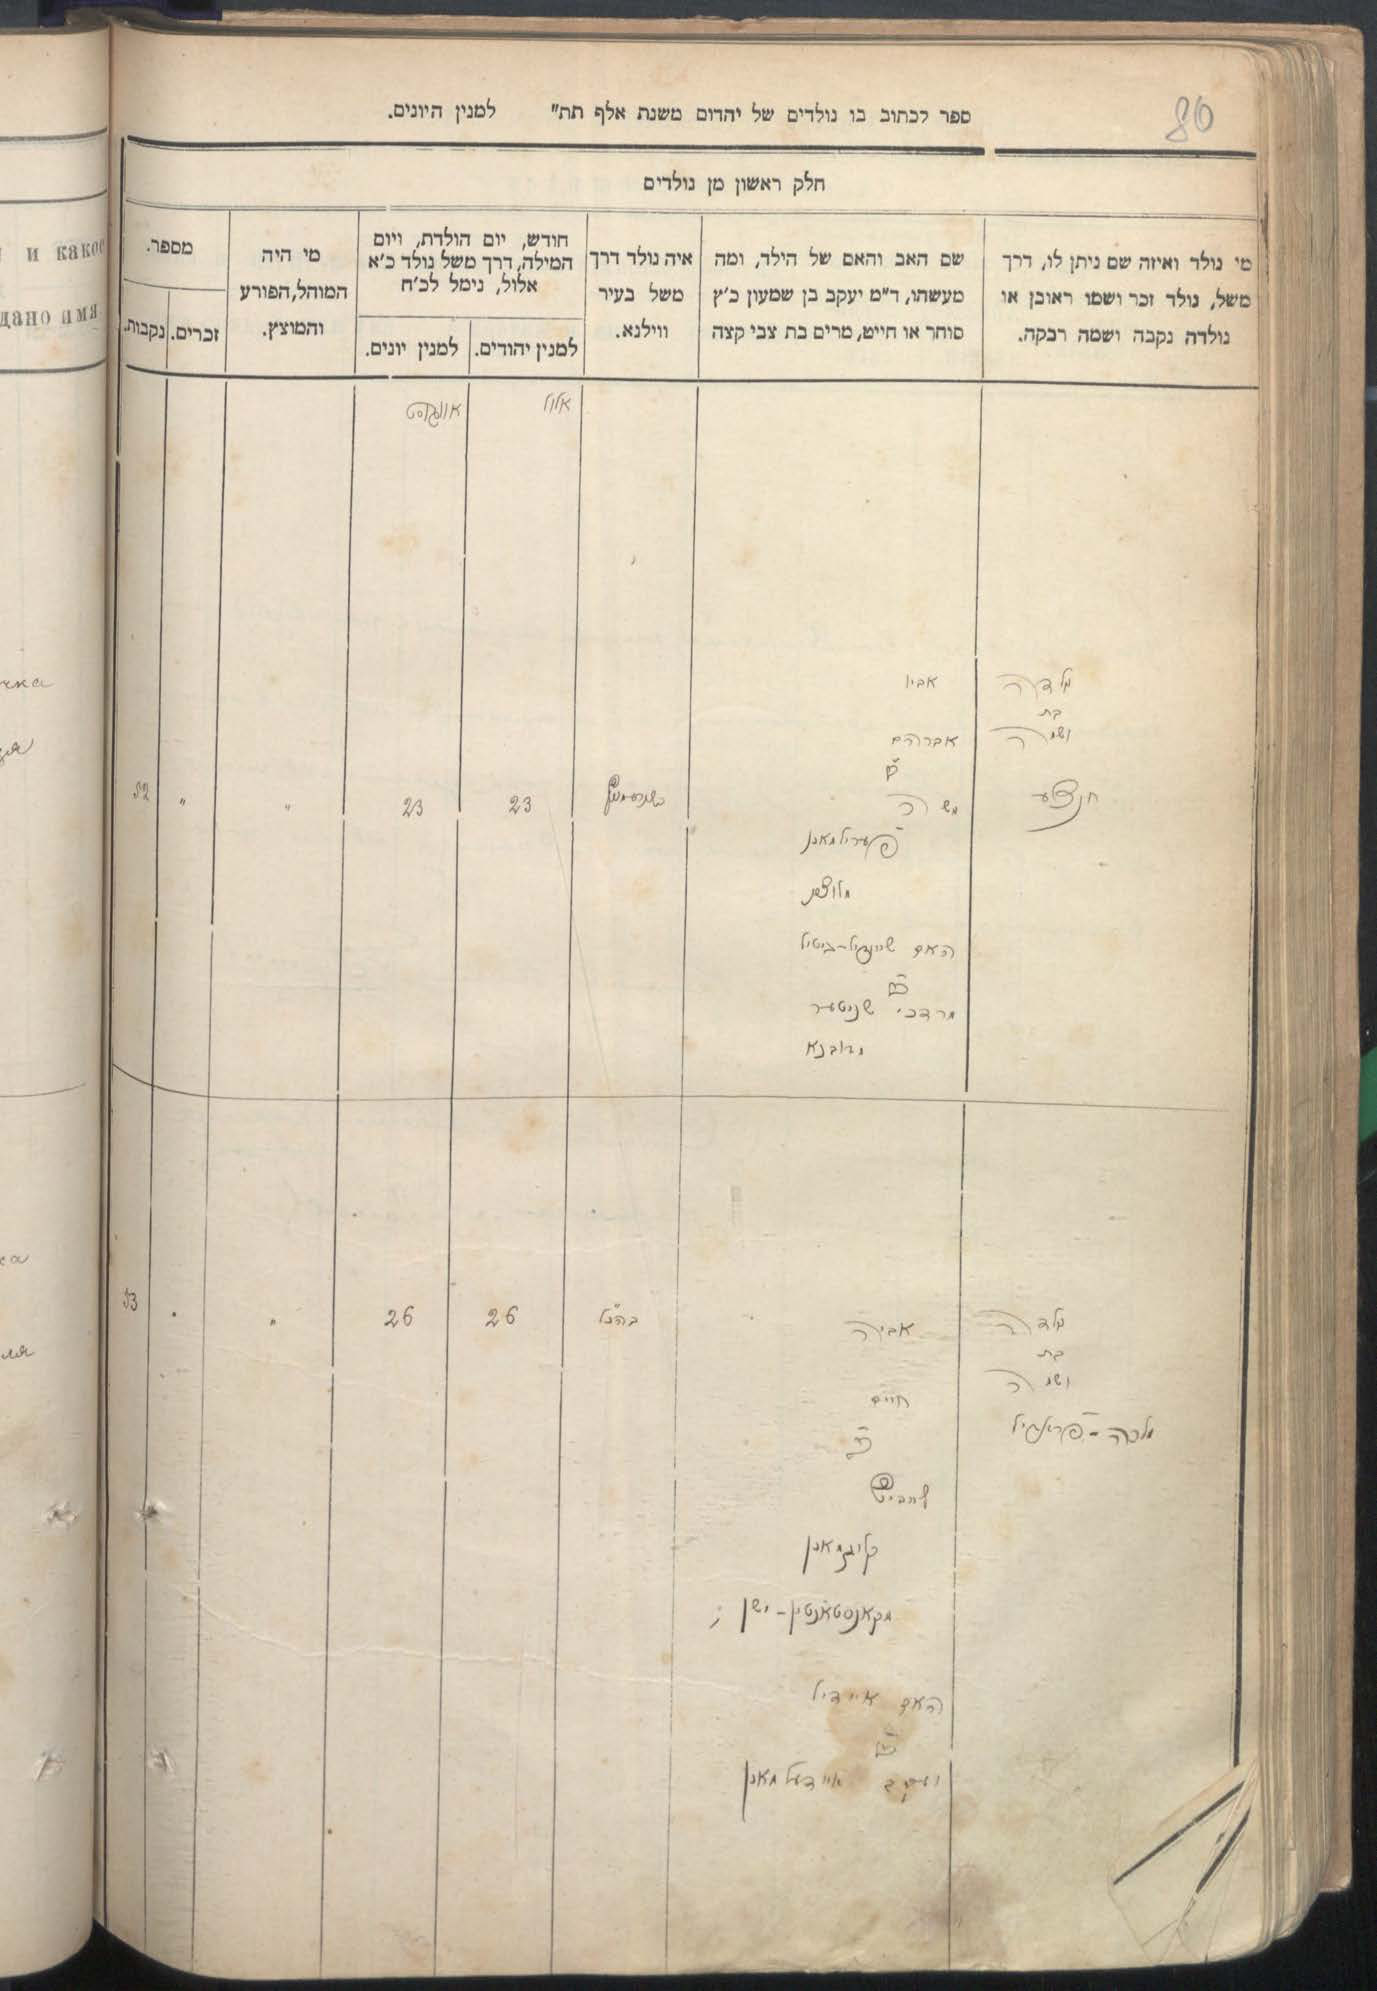 80
ספר לכתוב בו נולדים של יהדום משנת אלף תת" למנין היונים.
חלק ראשון מן נולדים
מי נולד ואיזה שם ניתן לו, דרך
משל, נולד זכר ושמו ראובן או
נולדה נקבה ושמה רבקה.
שם האב והאם של הילד, ומה
מעשהו, ד"מ יעקב בן שמעון כ"ץ
סוחר או חייט, מרים בת צבי קצה
איה נולד דרך
משל בעיר
ווילנא.
חודש, יום הולדת, ויום
המילה, דרך משל נולד כ'א
אלול, נימל לכ'ח
למנין יהודים.
למנין יונים.
מי היה
המוהל, הפורע
והמוצץ.
מספר.
זכרים.
נקבות.
אלול
אויגוסט
נולדה
בת
ושמה
אביו
אברהם
ב"ר
משה
פערילמאן
האם שיינדיל-בייטיל
ב"ר
מרדכי שניטער
23
23
"
"
52
נולדה
בת
ושמה
מלכה-פראדיל
אביה
חיים
ב"ר
קליגמאן
מקאנסטאנטין-ישן;
האם איידיל
ב"ר
יעקב איידעלמאן
26
26
"
53
и какое
дано имя
чка
ка
ля